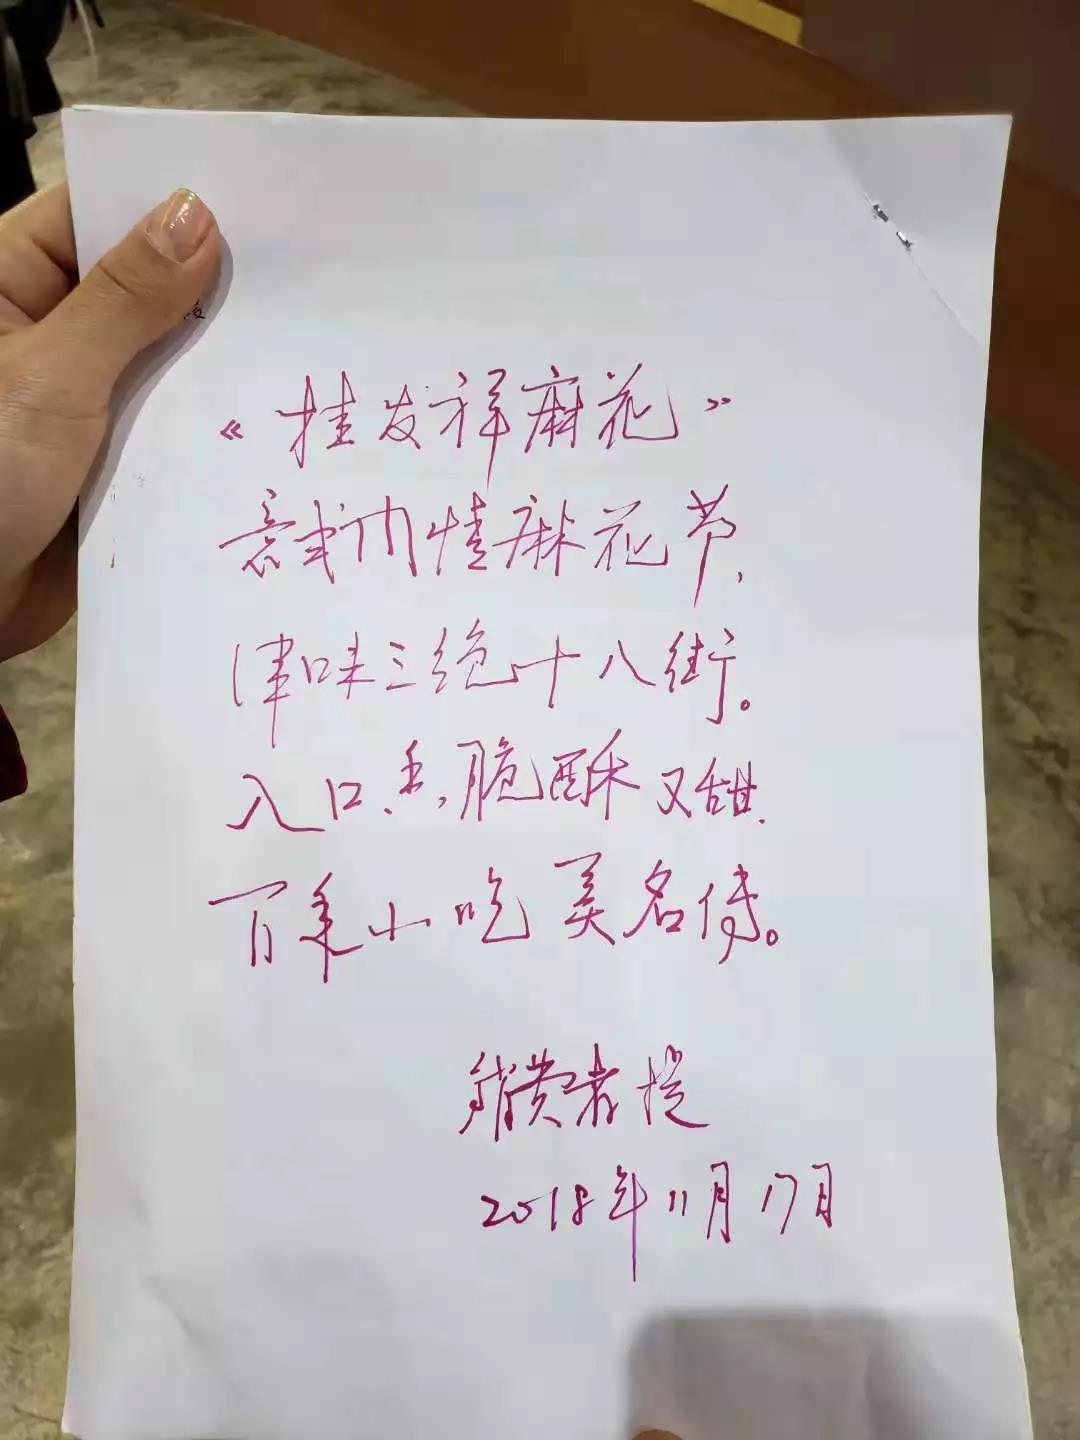 《桂发祥麻花》
意式门情麻花节,
津味三绝十八街。
入口香,脆酥又甜,
百年小吃美名传。
消费者提
2018年11月17日